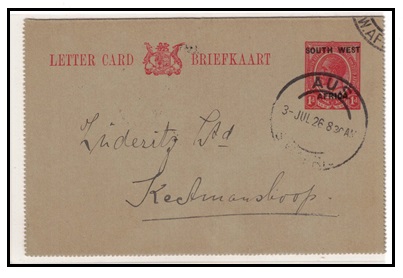 LETTER CARD BRIEFKAART
SOUTH WEST
AFRICA
1d 1d
W.AF
AUS
3-JUL 26 8 30 AM
Lüderitz Ltd
Keetmanshoop.